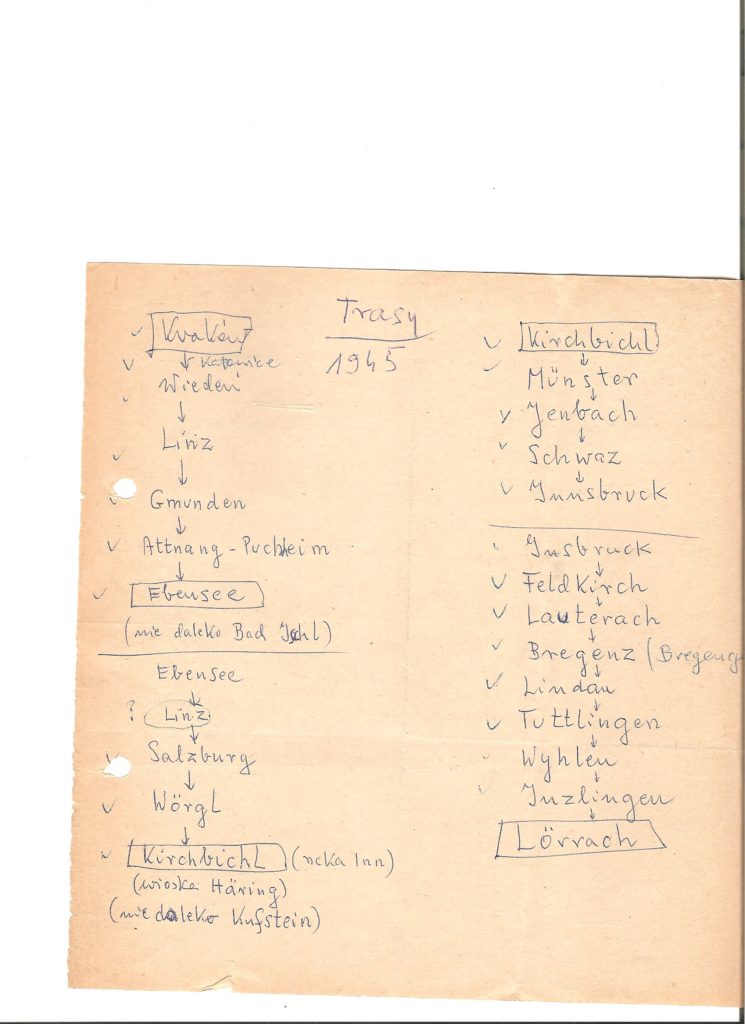 Trasy
1945
Kraków
↓ Katowice
Wiedeń
↓
Linz
↓
Gmunden
↓
Attnang-Puchheim
↓
Ebensee
(nie daleko Bad Ischl)
Ebensee
↓
? Linz
↓
Salzburg
↓
Wörgl
↓
Kirchbichl (rzeka Inn)
(wioska Häring)
(nie daleko Kufstein)
Kirchbichl
↓
Münster
↓
Jenbach
↓
Schwaz
↓
Innsbruck
Insbruck
↓
Feldkirch
↓
Lauterach
↓
Bregenz (Bregeng
↓
Lindau
↓
Tuttlingen
↓
Wyhlen
↓
Inzlingen
↓
Lörrach